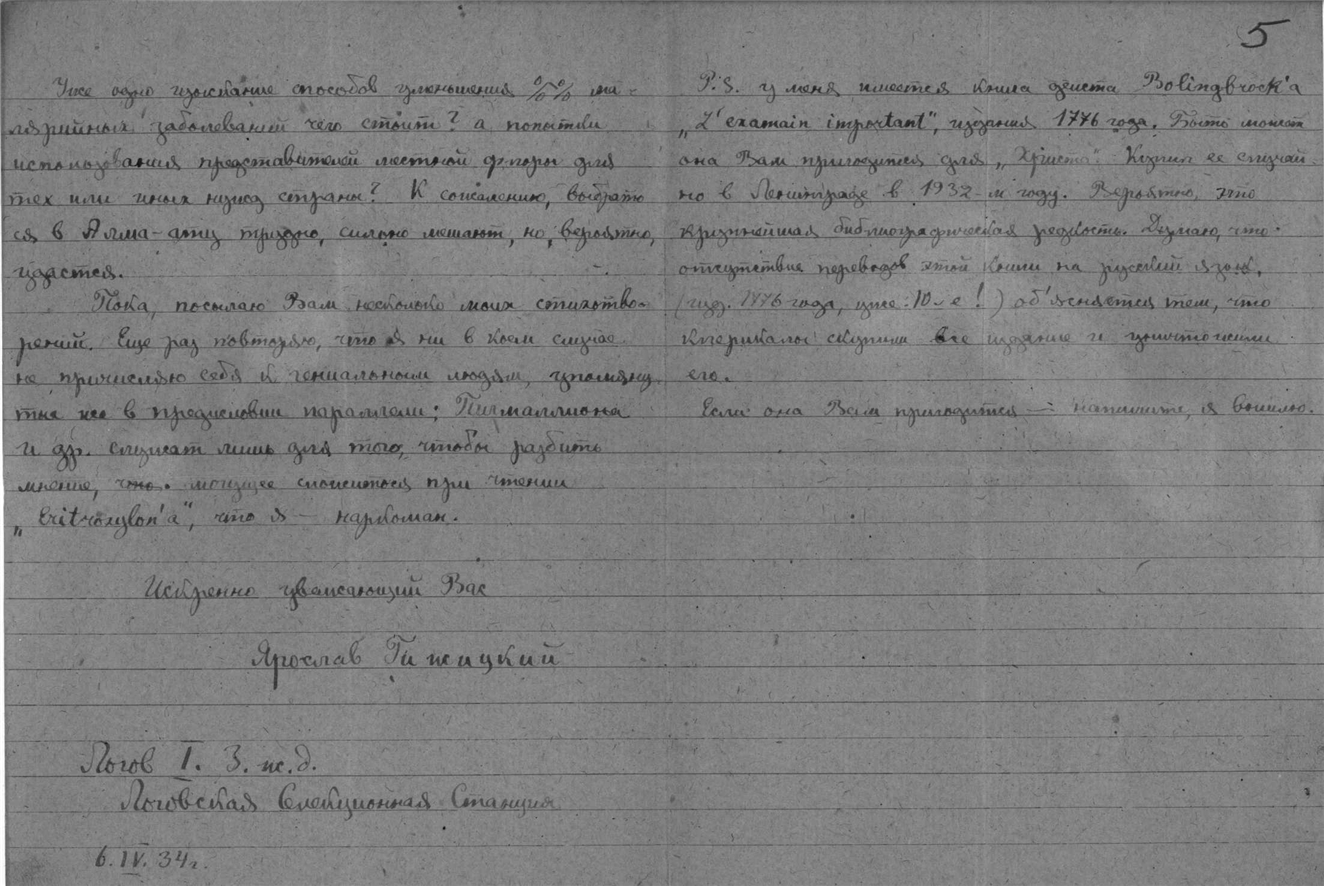 5
Уже одно изыскание способов уменьшения %% ма-
лярийных заболеваний чего стоит? а попытки
использования представителей местной флоры для
тех или иных нужд страны? К сожалению, выбрать
ся в Алма-ату трудно, сильно мешают, но, вероятно,
удастся.
Пока, посылаю Вам несколько моих стихотво-
рений. Еще раз повторяю, что я ни в коем случае
не причисляю себя к гениальным людям, упомяну
тые же в предисловии параллели: Пигмаллиона
и др. служат лишь для того, чтобы разбить
мнение, что. могущее сложиться при чтении
„Eritroxylon'a", что я — наркоман.
Искренно уважающий Вас
Ярослав Гижицкий
Логов I. З. ж. д.
Логовская Селекционная Станция
6. IV. 34 г.
P.S. у меня имеется книга деиста Bolingbrock'a
„L'examain important", издания 1776 года. Быть может
она Вам пригодится для „Христа". Купил ее случай-
но в Ленинграде в 1932-м году. Вероятно, это
крупнейшая библиографическая редкость. Думаю, что
отсутствие переводов этой книги на русский язык,
(изд. 1776 года, уже 10-е!) об'ясняется тем, что
клерикалы скупили все издание и уничтожили
его.
Если она Вам пригодится — напишите, я вышлю.